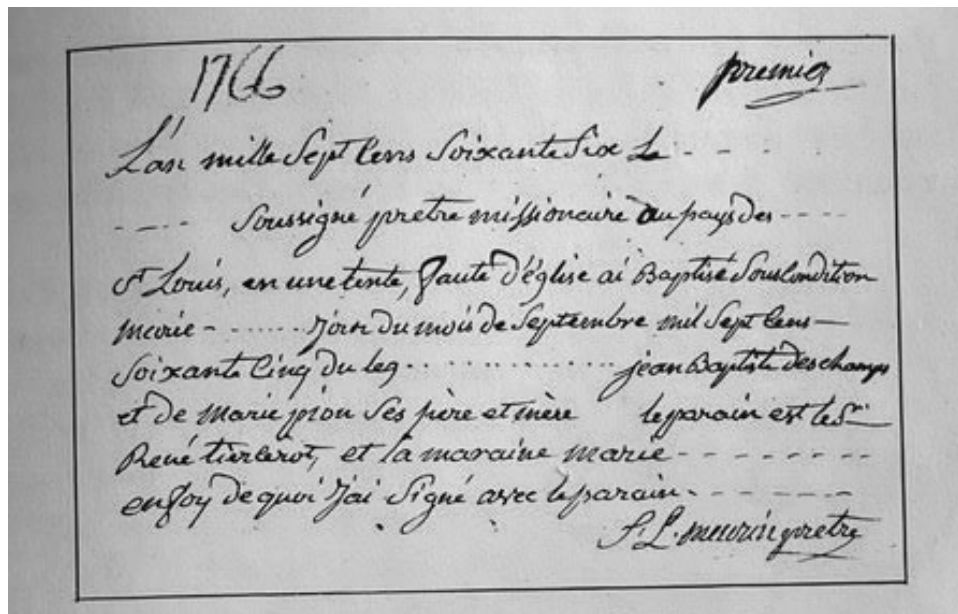 1766 premier
L'an mille Sept Cens Soixante Six Le - - - -
- - - - Soussigné pretre missionaire au pays des - - - -
St Louis, en une tente, faute d'église ai Baptisé Sous Condition
marie - - - - - - - jour du mois de Septembre mil Sept Cens —
Soixante Cinq du leg - - - - - - - - - - - jean Baptiste deschamps
et de marie pion Ses père et mère le parain est le Sr —
René Kiercerot, et la maraine marie - - - - - - - -
en foy de quoi j'ai Signé avec le parain - - - - - -
S. L. meurin pretre